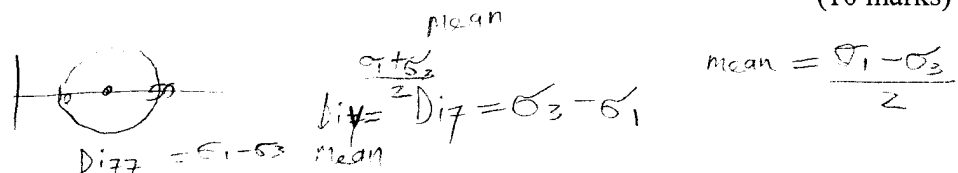 (10 marks)
Mean
σ1+σ3
2
Dif = σ3 - σ1
mean = σ1 - σ3
2
Diff = σ1 - σ3
Mean